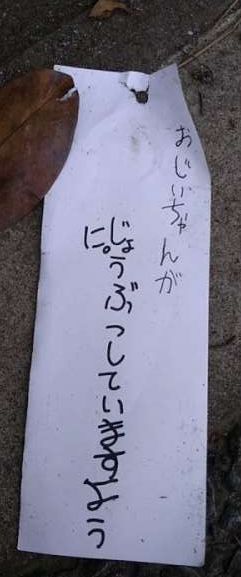 おじいちゃんが
じょうぶつしていきますよう
に。